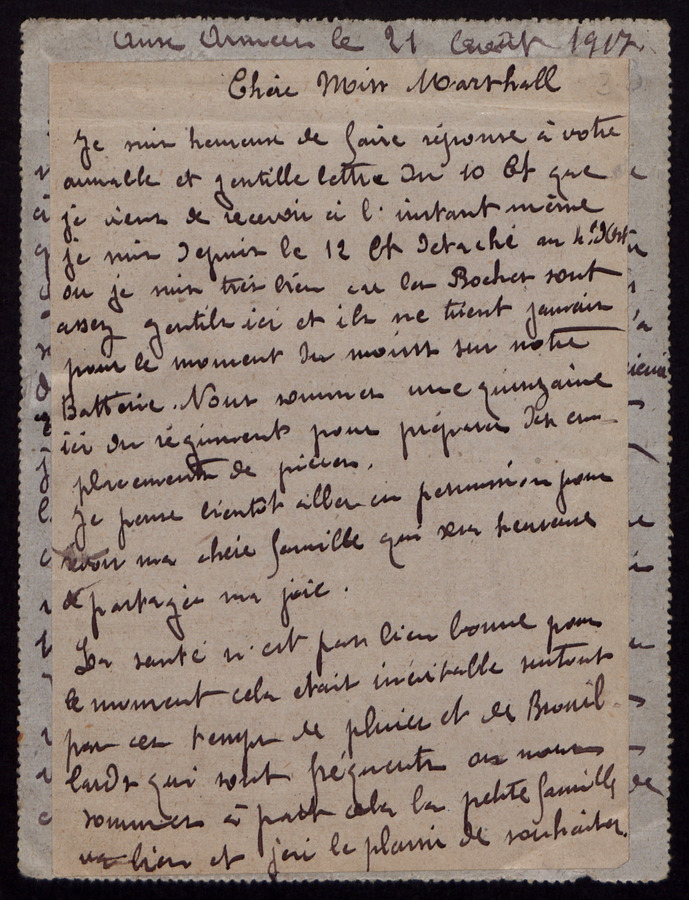 Aux Armées le 21 Août 1917
Chère Miss Marshall
Je suis heureuse de faire réponse à votre
aimable et gentille lettre du 10 Ct que
je viens de recevoir à l'instant même
je suis depuis le 12 Ct detaché au
ou je suis très bien car les Boches sont
assez gentils ici et ils ne tirent jamais
pour le moment du moins sur notre
Batterie. Nous sommes une quinzaine
ici du régiments pour préparer des em-
placements de pièces.
Je pense bientôt aller en permission pour
revoir ma chère famille qui sera heureuse
de partager ma joie.
La santé n'est pas bien bonne pour
le moment cela etait inévitable surtout
par ces temps de pluies et de Brouil-
lards qui sont fréquents ou nous
sommes à part cela la petite famille
va bien et j'ai le plaisir de souhaiter